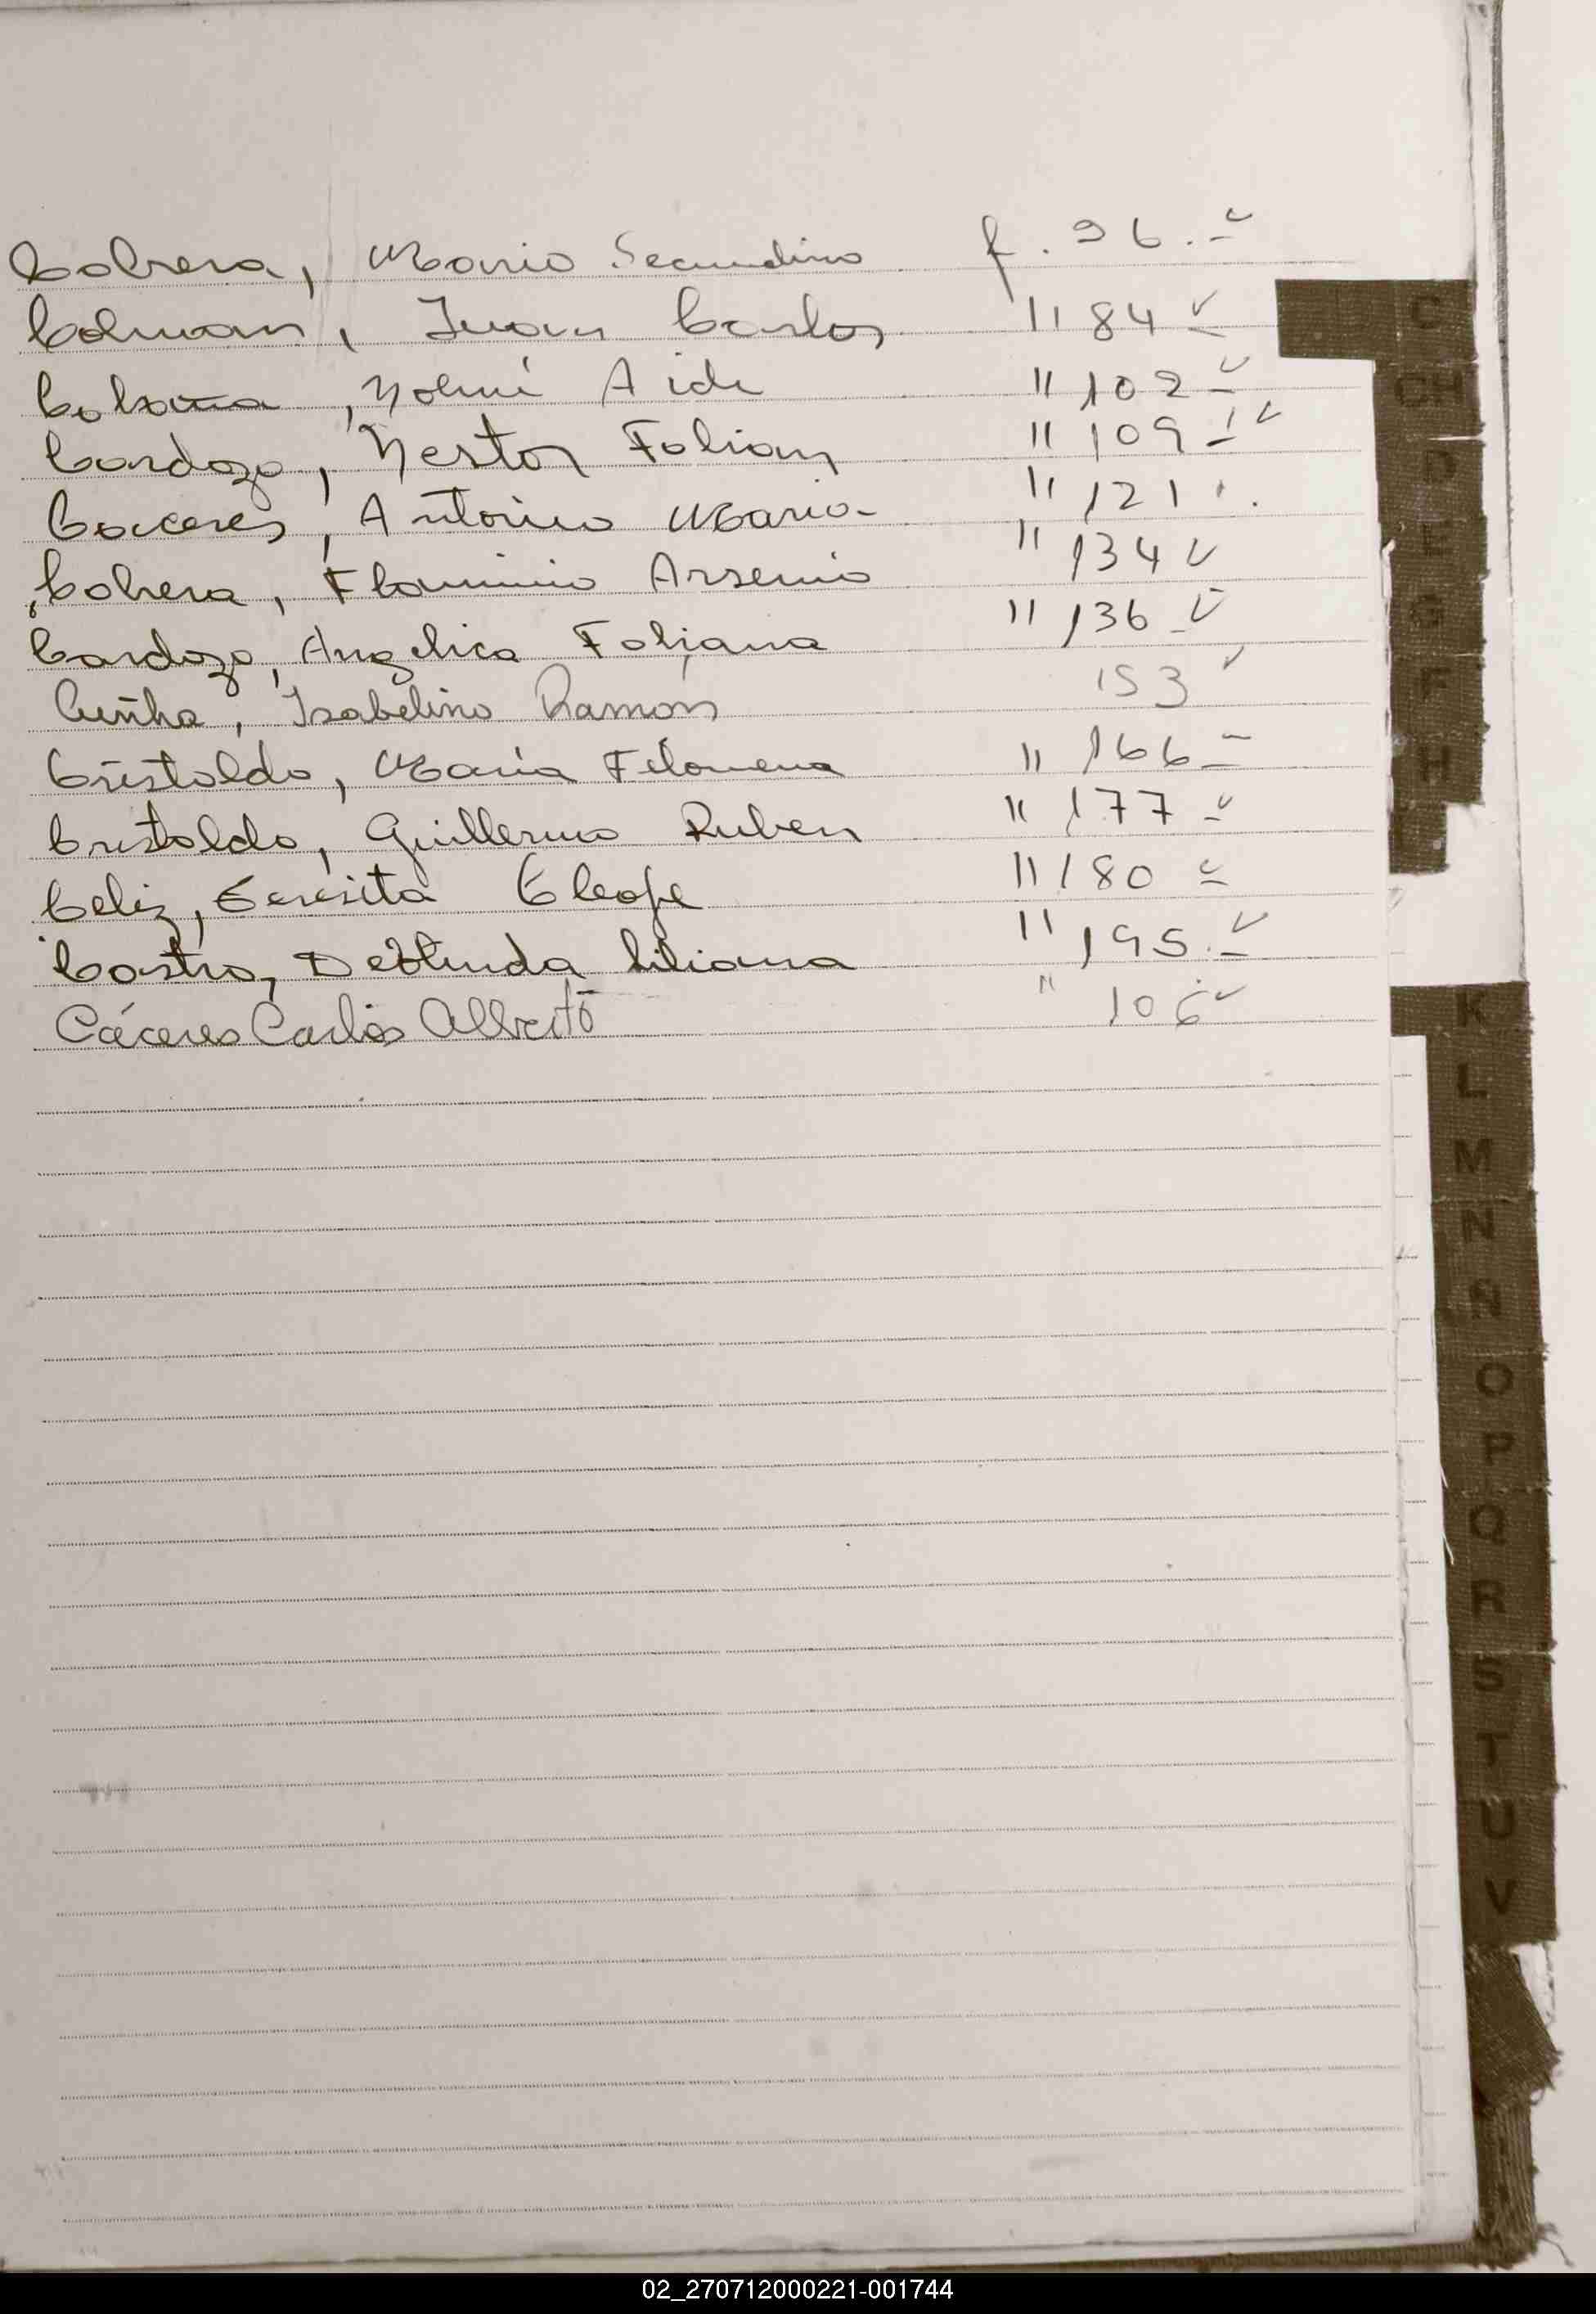 Cabrera, Mario Secundino f. 96.-
Colman, Juan Carlos " 84
, Noemí Aide " 102
Cardozo, Nestor Fabian " 109
Caceres, Antonio Mario- " 121
Cabrera, Flaminio Arsenio " 134
Cardozo, Angelica Fabiana " 136
Cuñha, Isabelino Ramón 153
Cristaldo, María Filomena " 166
Cristaldo, Guillermo Ruben " 177
Celiz, Teresita Cleofe " 180
Castro, Deolinda Liliana " 195
Cáceres Carlos Alberto " 106
C
CH
D
E
G
F
H
K
L
M
N
Ñ
O
P
Q
R
S
T
U
V
02_270712000221-001744